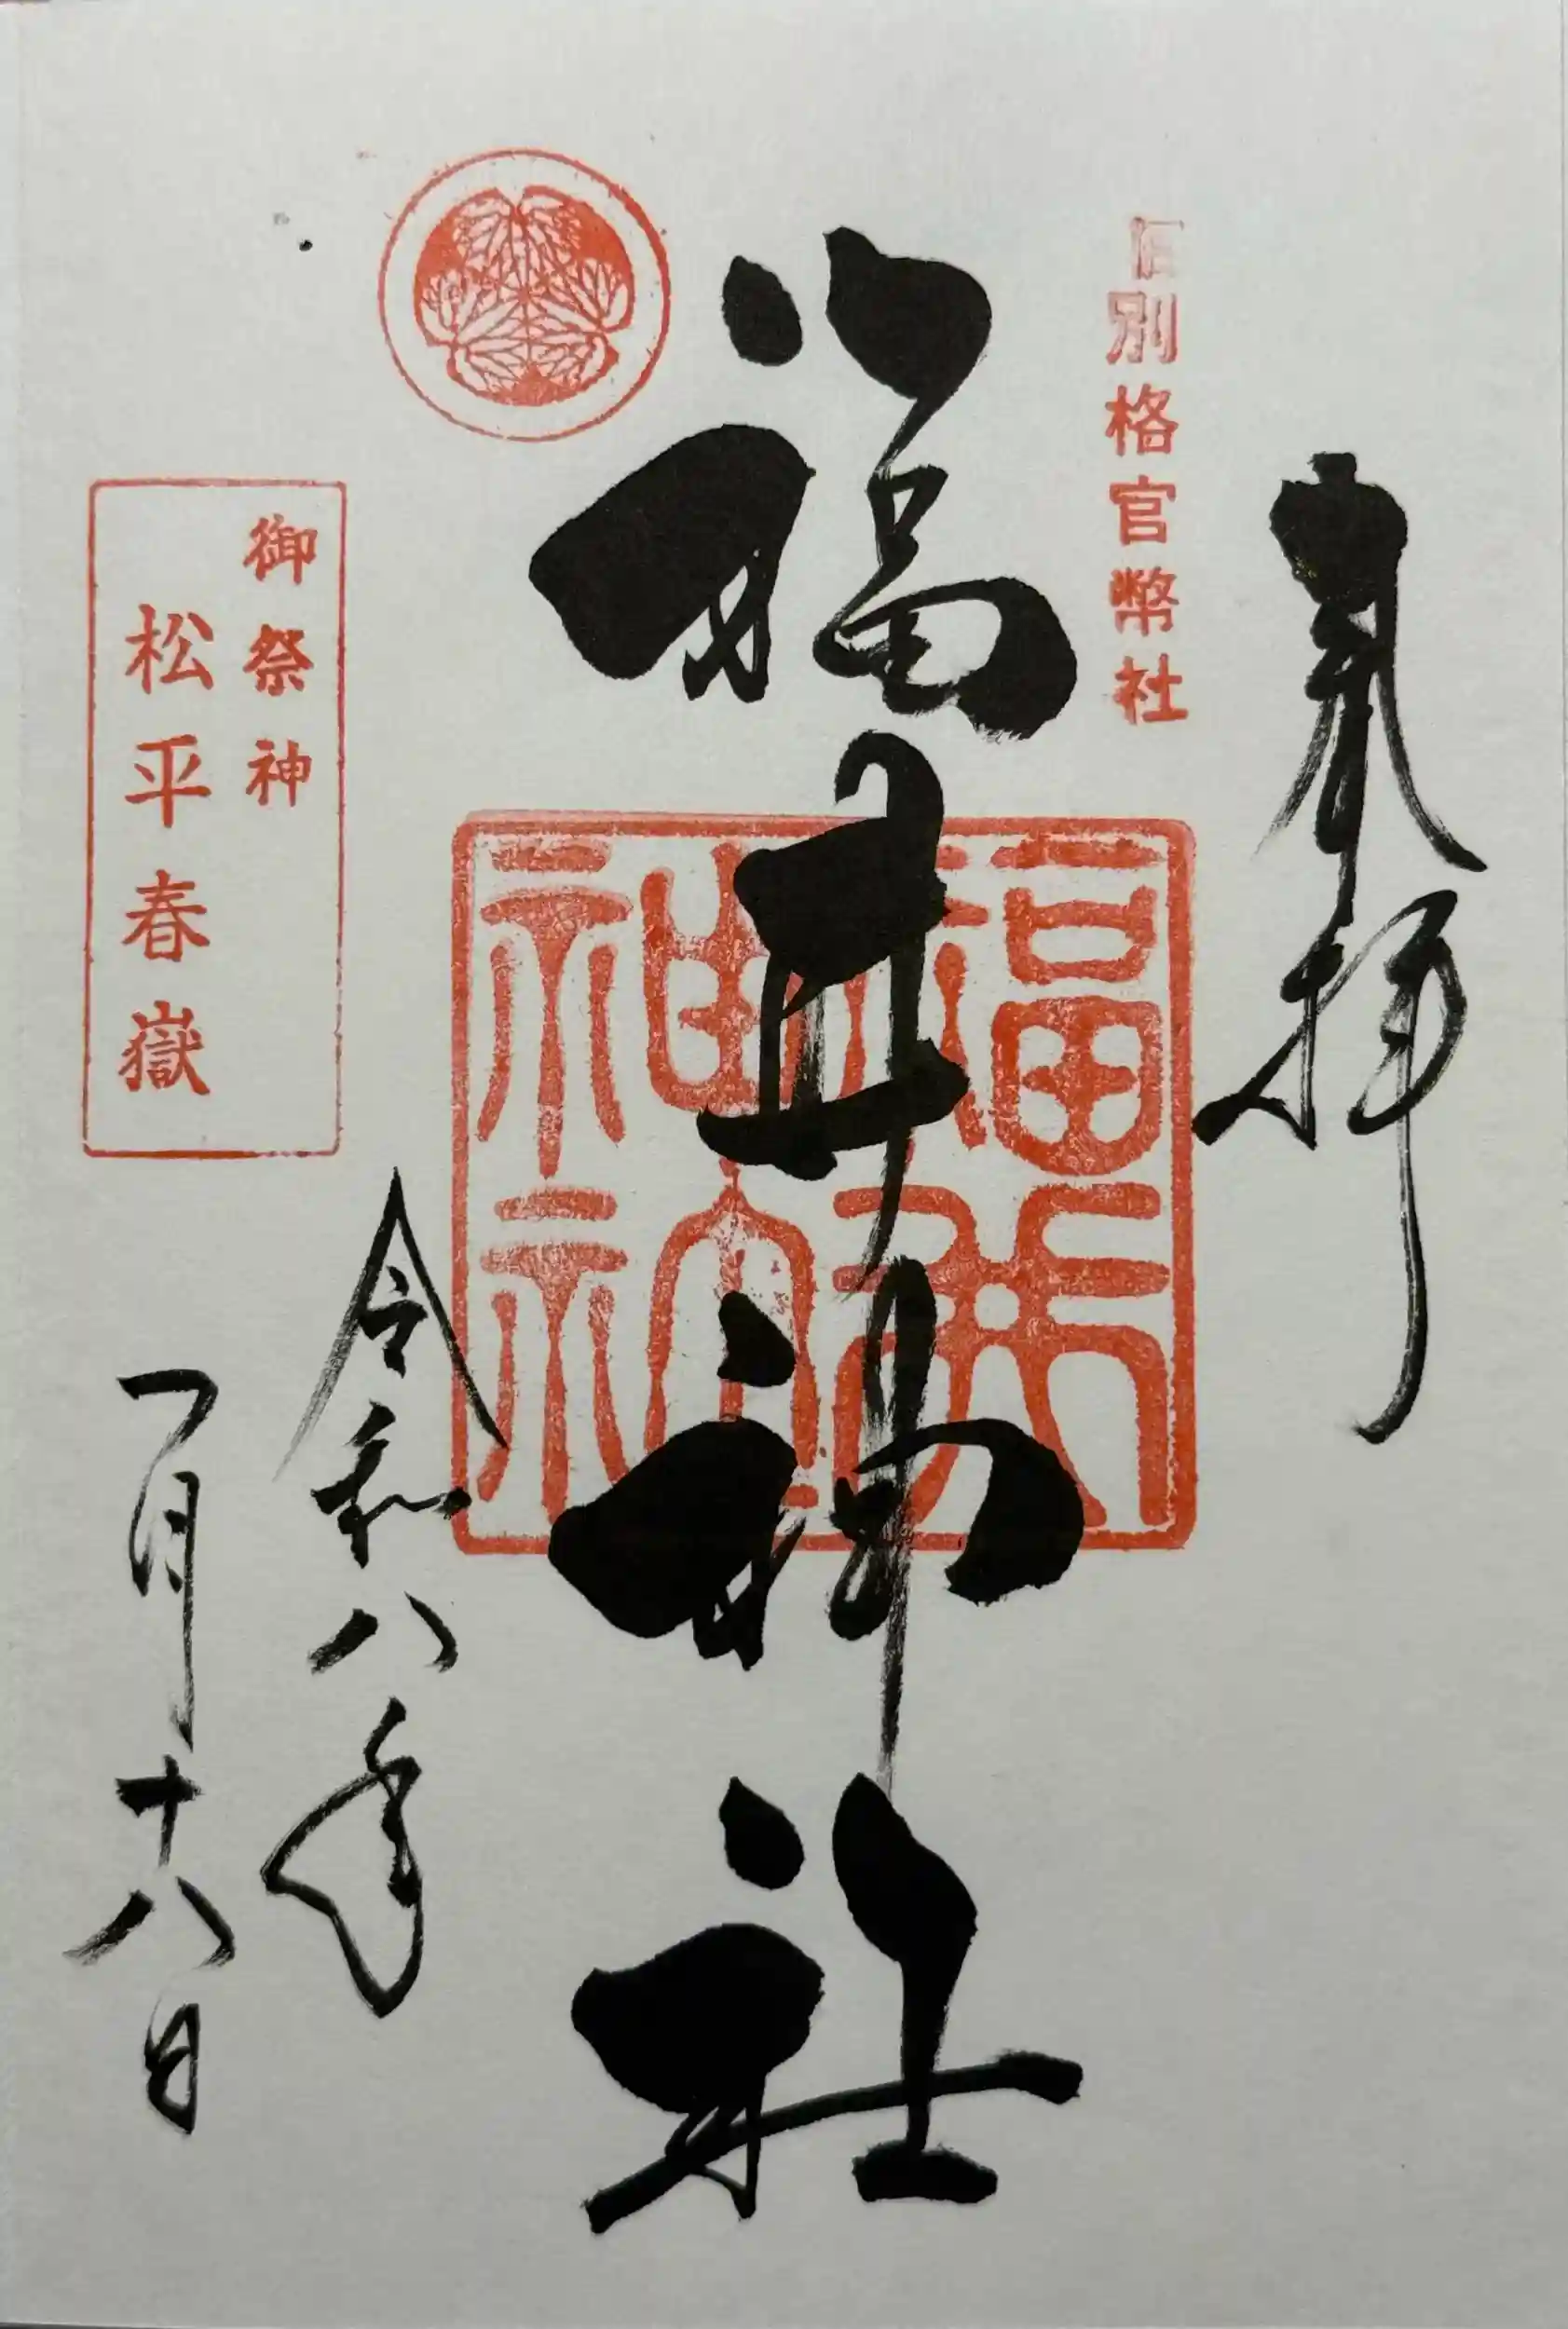 奉拝
旧別格官幣社
福井神社
福井神社
御祭神
松平春嶽
令和八年
一月十八日